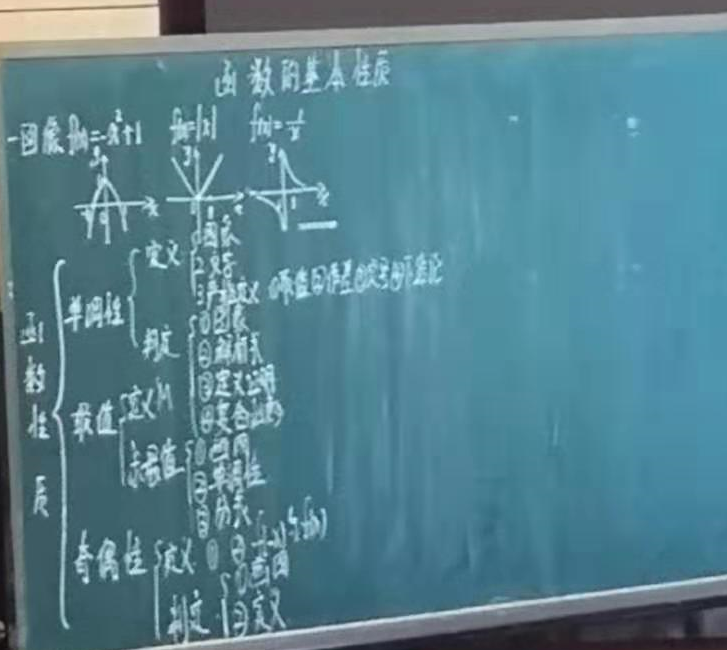 函数的基本性质
一图像 f(x)=-x²+1 f(x)=|x| f(x)=1/x
函数性质
单调性
定义
1图象
2文字
3严格定义 ①取值②作差③定号④下结论
判定
①图象
②解析式
③定义证明
④复合函数
最值
定义M
求最值
①图
②单调性
③
奇偶性
定义 ① ②
判定
①画图
②定义